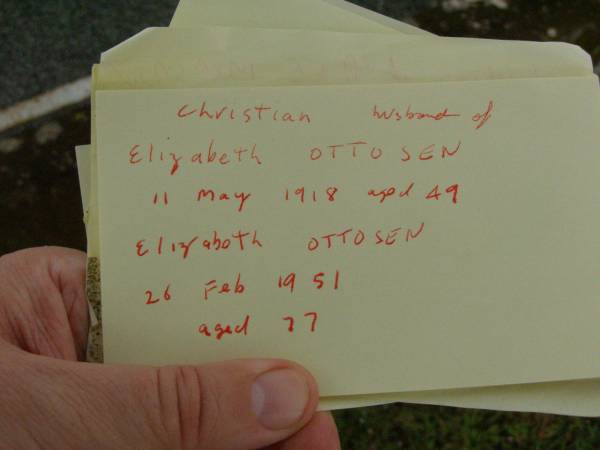 Christian husband of
Elizabeth OTTOSEN
11 May 1918 aged 49
Elizabeth OTTOSEN
26 Feb 1951
aged 77